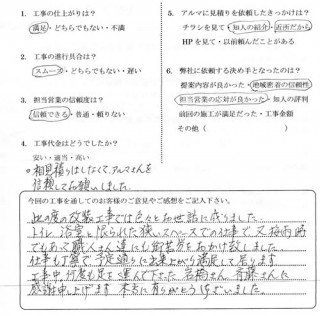 1. 工事の仕上がりは？
満足・どちらでもない・不満
2. 工事の進行具合は？
スムーズ・どちらでもない・遅い
3. 担当営業の信頼度は？
信頼できる・普通・頼りない
4. 工事代金はどうでしたか？
安い・適当・高い
○相見積りはしなくて、アルマさんを
信頼してお願いしました。
5. アルマに見積りを依頼したきっかけは？
チラシを見て・知人の紹介・近所だから
HPを見て・以前頼んだことがある
6. 弊社に依頼する決め手となったのは？
提案内容が良かった・地域密着の信頼性
担当営業の応対が良かった・知人の評判
前回の施工が満足だった・工事金額
その他（　　　）
今回の工事を通してのお客様のご意見やご感想をご記入下さい。
此の度の改装工事では色々とお世話に成りました。
トイレ、浴室と限られた狭いスペースでの仕事で、又梅雨時
でもあって職人さん達にも御苦労をおかけ致しました。
仕事も丁寧で予定通りに出来上がり満足して居ります
工事中、何度も足を運んで下さった岩楠さん、斉藤さんに
感謝申し上げます 本当に有りがとうございました。